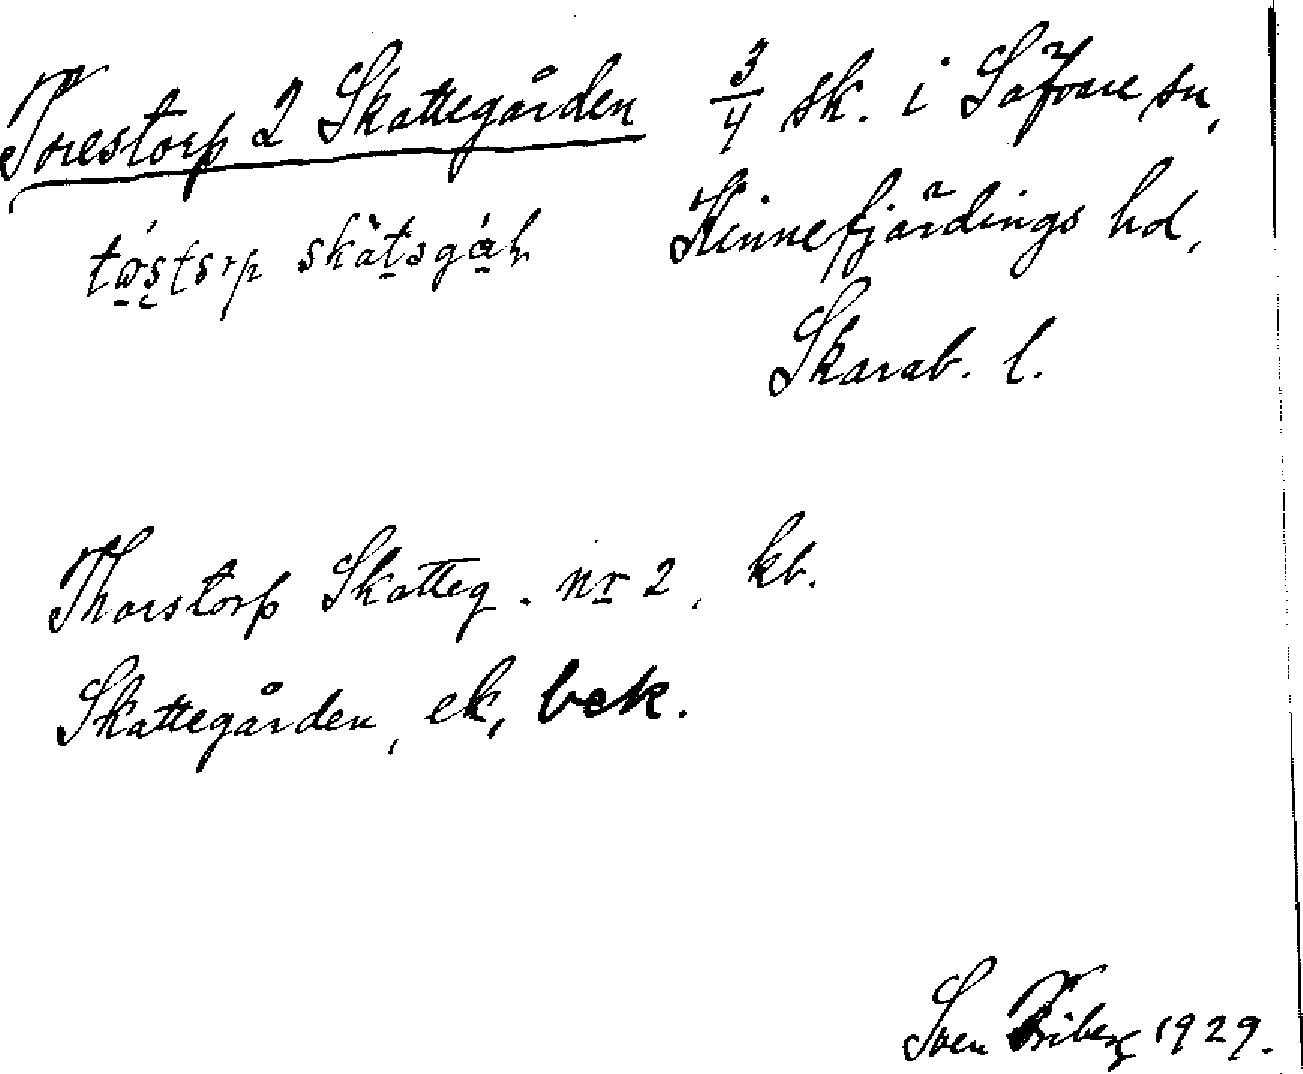 Torestorp 2 Skattegården 3/4 sk. i Säfvare sn,
Kinnefjärdings hd,
Skarab. l.
Thorstorp Skatteg. nr 2, kb.
Skattegården, ek, bek.
Sven Friberg 1929.